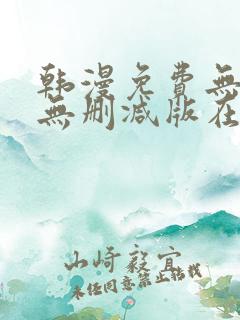 韩漫免费無
無删减版在
山崎毅宜
未经同意禁止转载